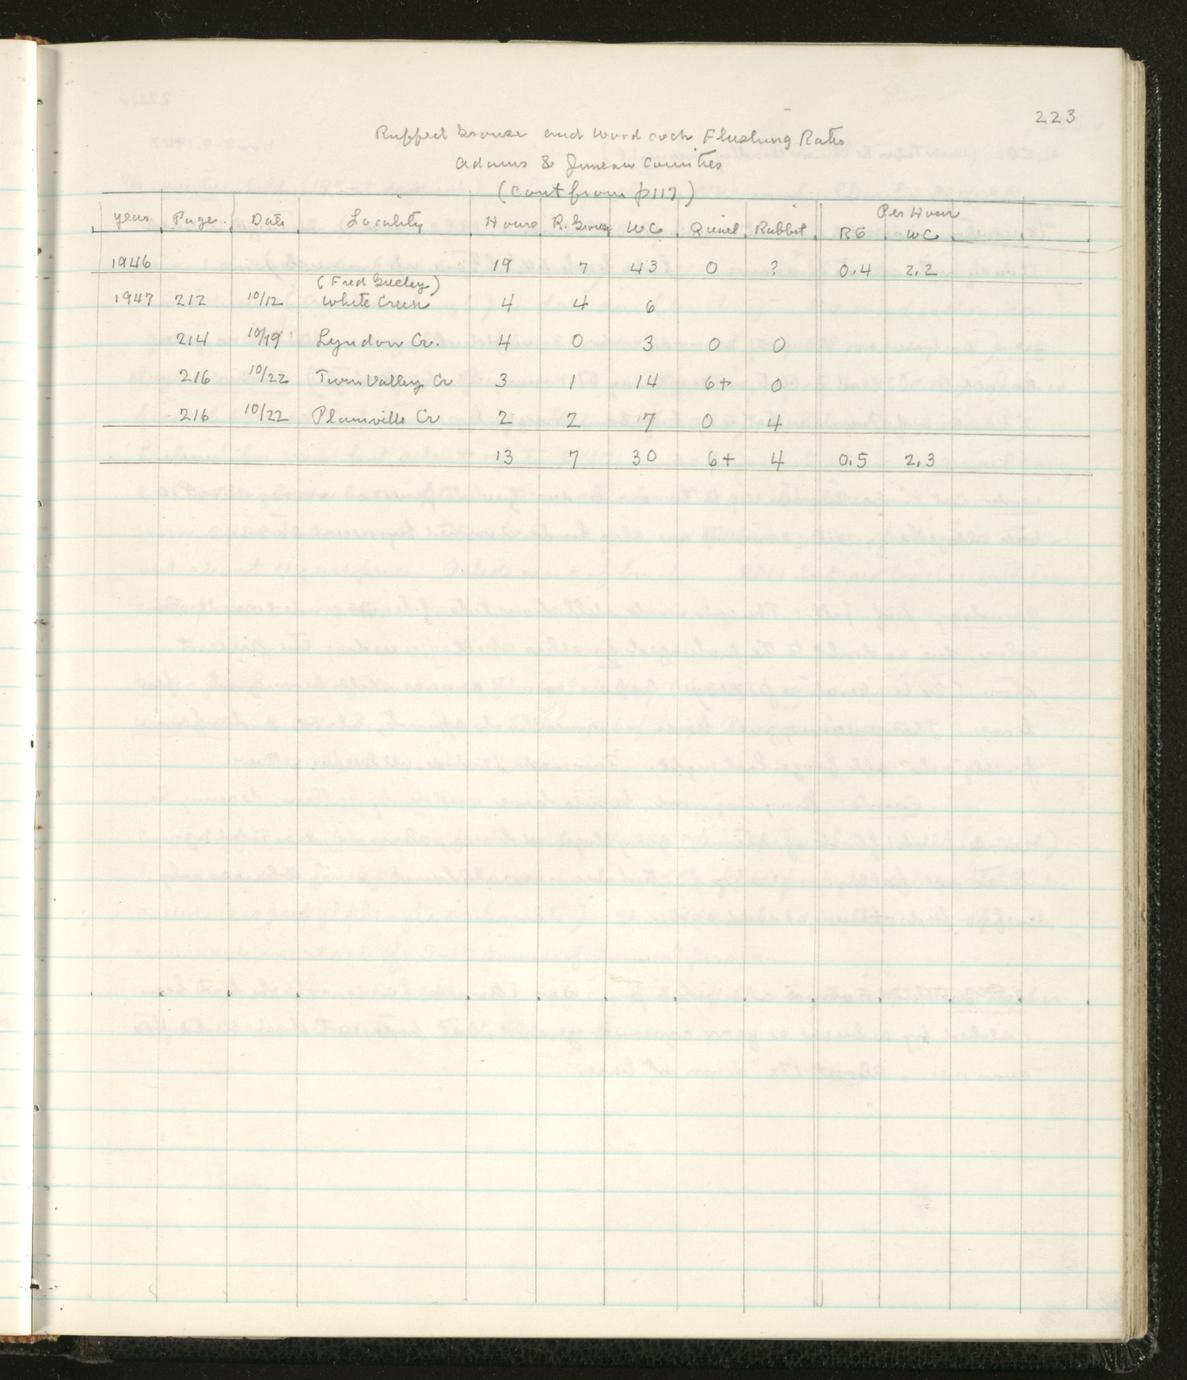 223
Ruffed Grouse and Woodcock Flushing Ratio
Adams & Juneau Counties
(Cont from p117)
Per Hour
year Page Date Locality Hours R. Grouse WC Quail Rabbit RG WC
1946 19 7 43 0 ? 0.4 2.2
(Fred Greeley)
1947 212 10/12 White Creek 4 4 6
214 10/19 Lyndon Cr. 4 0 3 0 0
216 10/22 Town Valley Cr 3 1 14 6+ 0
216 10/22 Plainville Cr 2 2 7 0 4
13 7 30 6+ 4 0.5 2.3